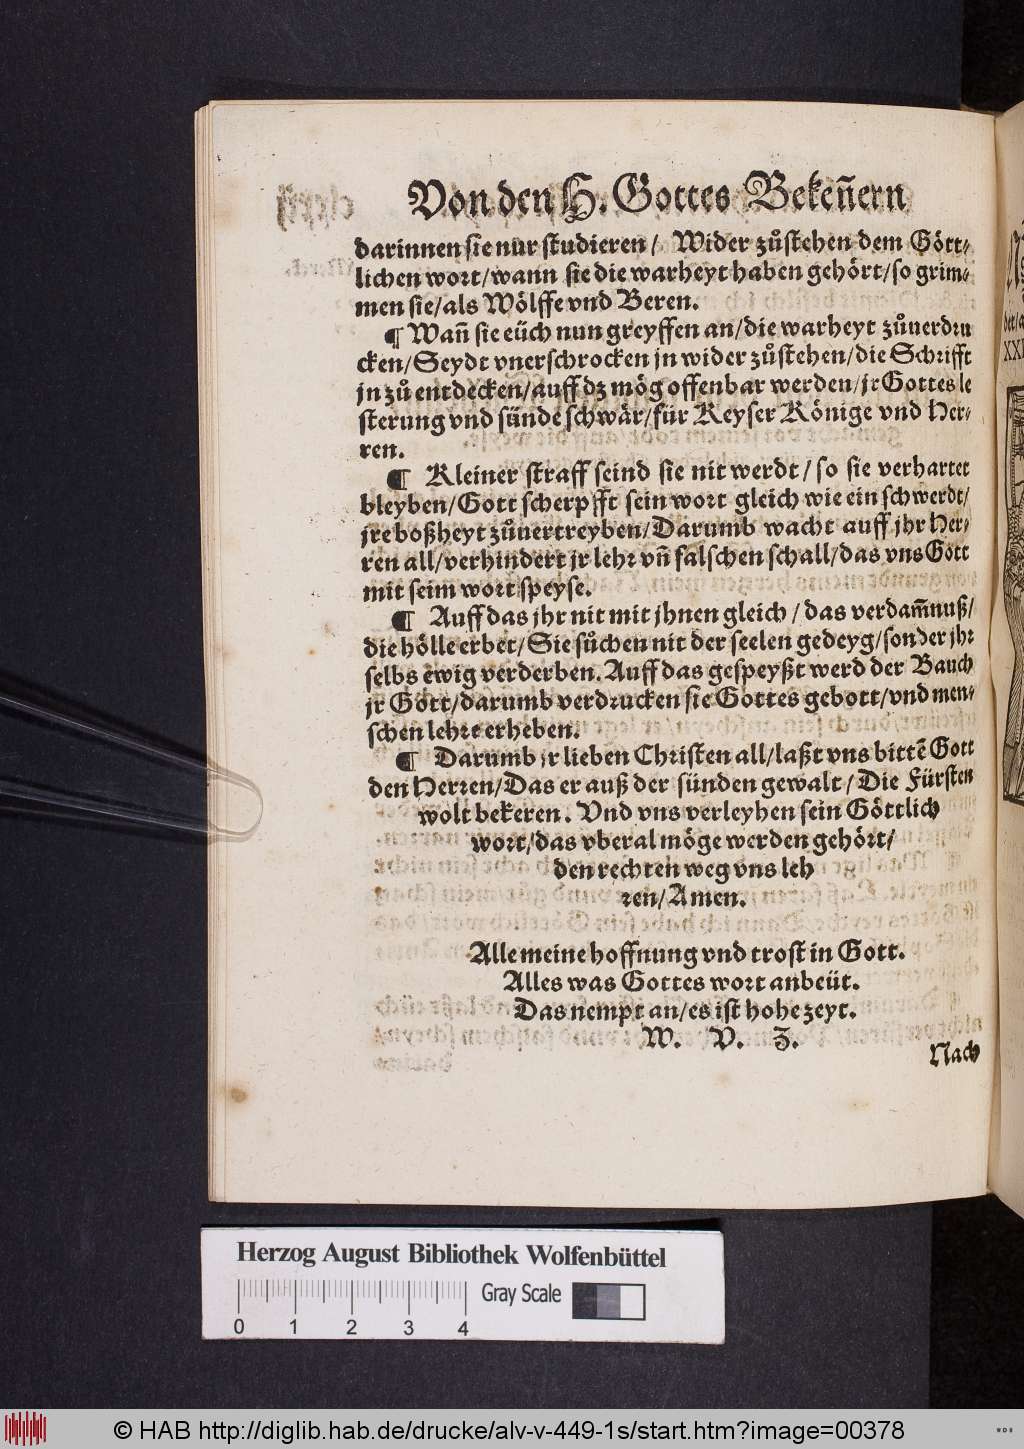 Von den H. Gottes Bekeñern
darinnen sie nur studieren / Wider zůstehen dem Gött⸗
lichen wort/wann sie die warheyt haben gehört/so grim⸗
men sie/als Wölffe vnd Beren.
¶ Wañ sie eüch nun greyffen an/die warheyt zůuerdru
cken/Seydt vnerschrocken jn wider zůstehen/die Schrifft
jn zů entdecken/auff dz mög offenbar werden/jr Gottes le
sterung vnd sünde schwär/für Keyser Könige vnd Her⸗
ren.
¶ Kleiner straff seind sie nit werdt/so sie verhartet
bleyben/Gott scherpfft sein wort gleich wie ein schwerdt/
jre boßheyt zůuertreyben/Darumb wacht auff jhr Her⸗
ren all/verhindert jr lehr vñ falschen schall/das vns Gott
mit seim wort speyse.
¶ Auff das jhr nit mit jhnen gleich / das verdam̃nuß/
die hölle erbet/Sie sůchen nit der seelen gedeyg/sonder jhr
selbs ewig verderben. Auff das gespeyßt werd der Bauch
jr Gott/darumb verdrucken sie Gottes gebott/vnd men⸗
schen lehre erheben.
¶ Darumb jr lieben Christen all/laßt vns bittẽ Gott
den Herren/Das er auß der sünden gewalt/Die Fürsten
wolt bekeren. Vnd vns verleyhen sein Göttlich
wort/das vberal möge werden gehört/
den rechten weg vns leh
ren/Amen.
Alle meine hoffnung vnd trost in Gott.
Alles was Gottes wort anbeüt.
Das nempt an/es ist hohe zeyt.
W. V. Z.
Nach
Herzog August Bibliothek Wolfenbüttel
Gray Scale
0 1 2 3 4
© HAB http://diglib.hab.de/drucke/alv-v-449-1s/start.htm?image=00378